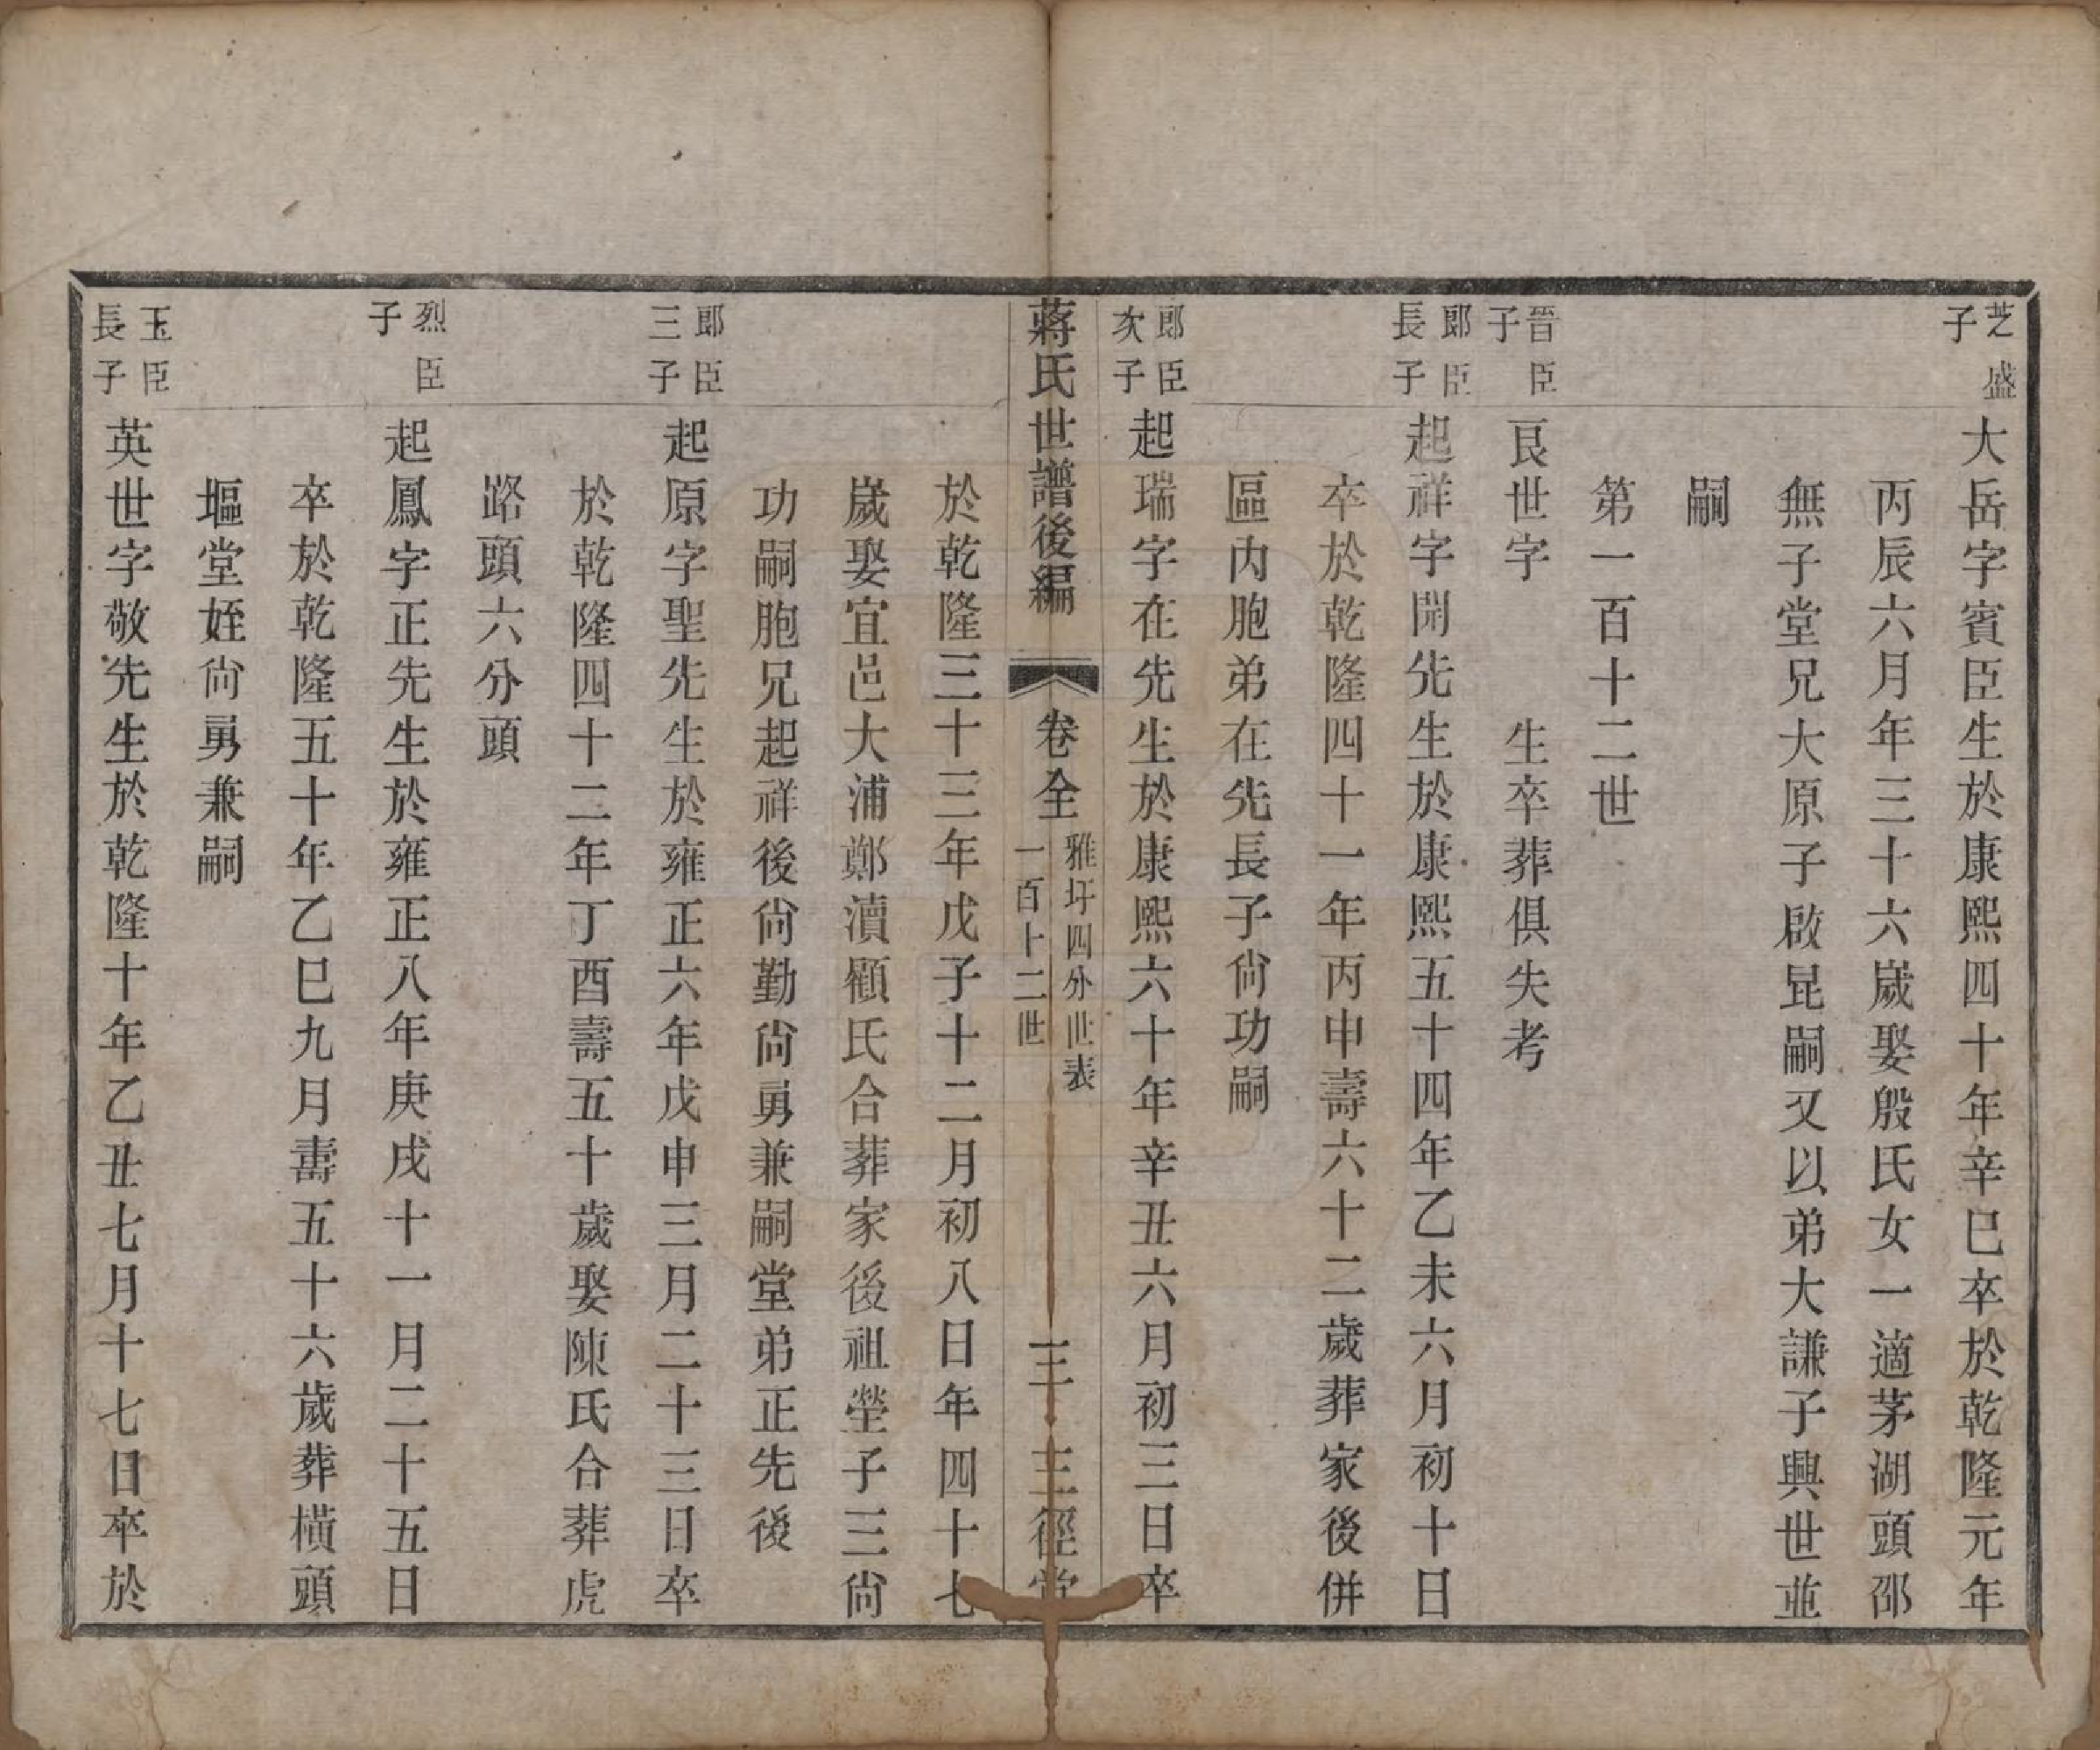 芝盛子
大岳字賓臣生於康熙四十年辛巳卒於乾隆元年
丙辰六月年三十六歲娶殷氏女一適茅湖頭邵
無子堂兄大原子啟昆嗣又以弟大謙子興世並
嗣
第一百十二世
晉臣子
艮世字　　生卒葬俱失考
郎臣長子
起祥字開先生於康熙五十四年乙未六月初十日
卒於乾隆四十一年丙申壽六十二歲葬家後併
區內胞弟在先長子尙功嗣
郎臣次子
起瑞字在先生於康熙六十年辛丑六月初三日卒
蔣氏世譜後編
卷全
雅圩四分世表
一百十二世
三
三徑堂
於乾隆三十三年戊子十二月初八日年四十七
歲娶宜邑大浦鄭瀆顧氏合葬家後祖塋子三尙
功嗣胞兄起祥後尙勤尙勇兼嗣堂弟正先後
郎臣三子
起原字聖先生於雍正六年戊申三月二十三日卒
於乾隆四十二年丁酉壽五十歲娶陳氏合葬虎
路頭六分頭
烈臣子
起鳳字正先生於雍正八年庚戌十一月二十五日
卒於乾隆五十年乙巳九月壽五十六歲葬橫頭
塸堂姪尙勇兼嗣
玉臣長子
英世字敬先生於乾隆十年乙丑七月十七日卒於